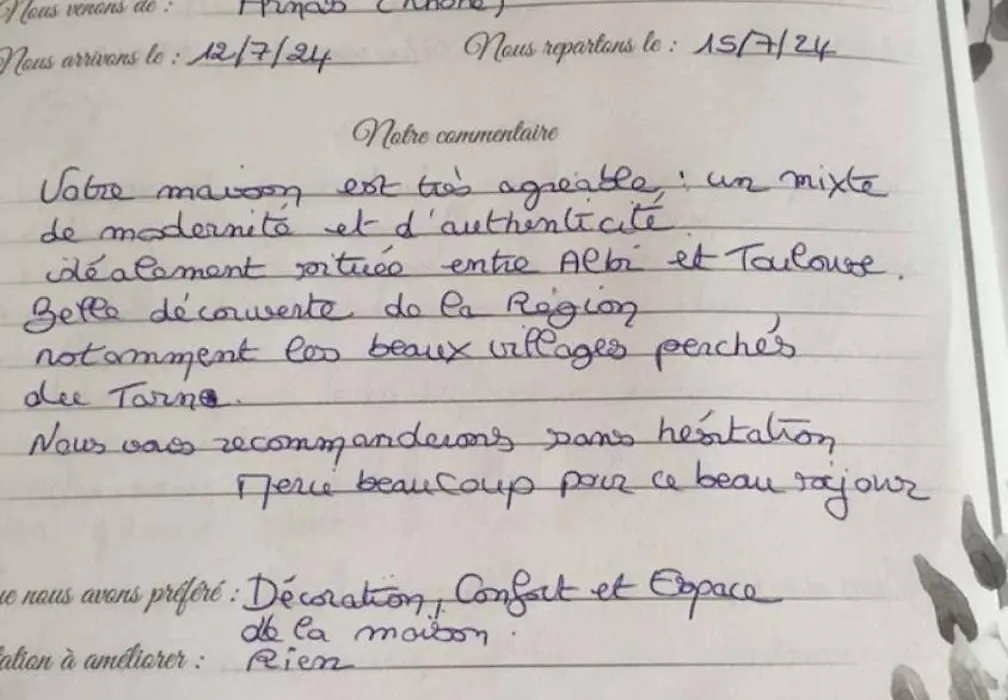 Nous venons de : Arnas (Rhône)
Nous arrivons le : 12/7/24 Nous repartons le : 15/7/24
Notre commentaire
Votre maison est très agréable : un mixte
de modernité et d'authenticité
idéalement située entre Albi et Toulouse.
Belle découverte de la Région
notamment les beaux villages perchés
du Tarn.
Nous vous recommanderons sans hésitation
Merci beaucoup pour ce beau séjour
ue nous avons préféré : Décoration, Confort et Espace
de la maison.
tation à améliorer : Rien